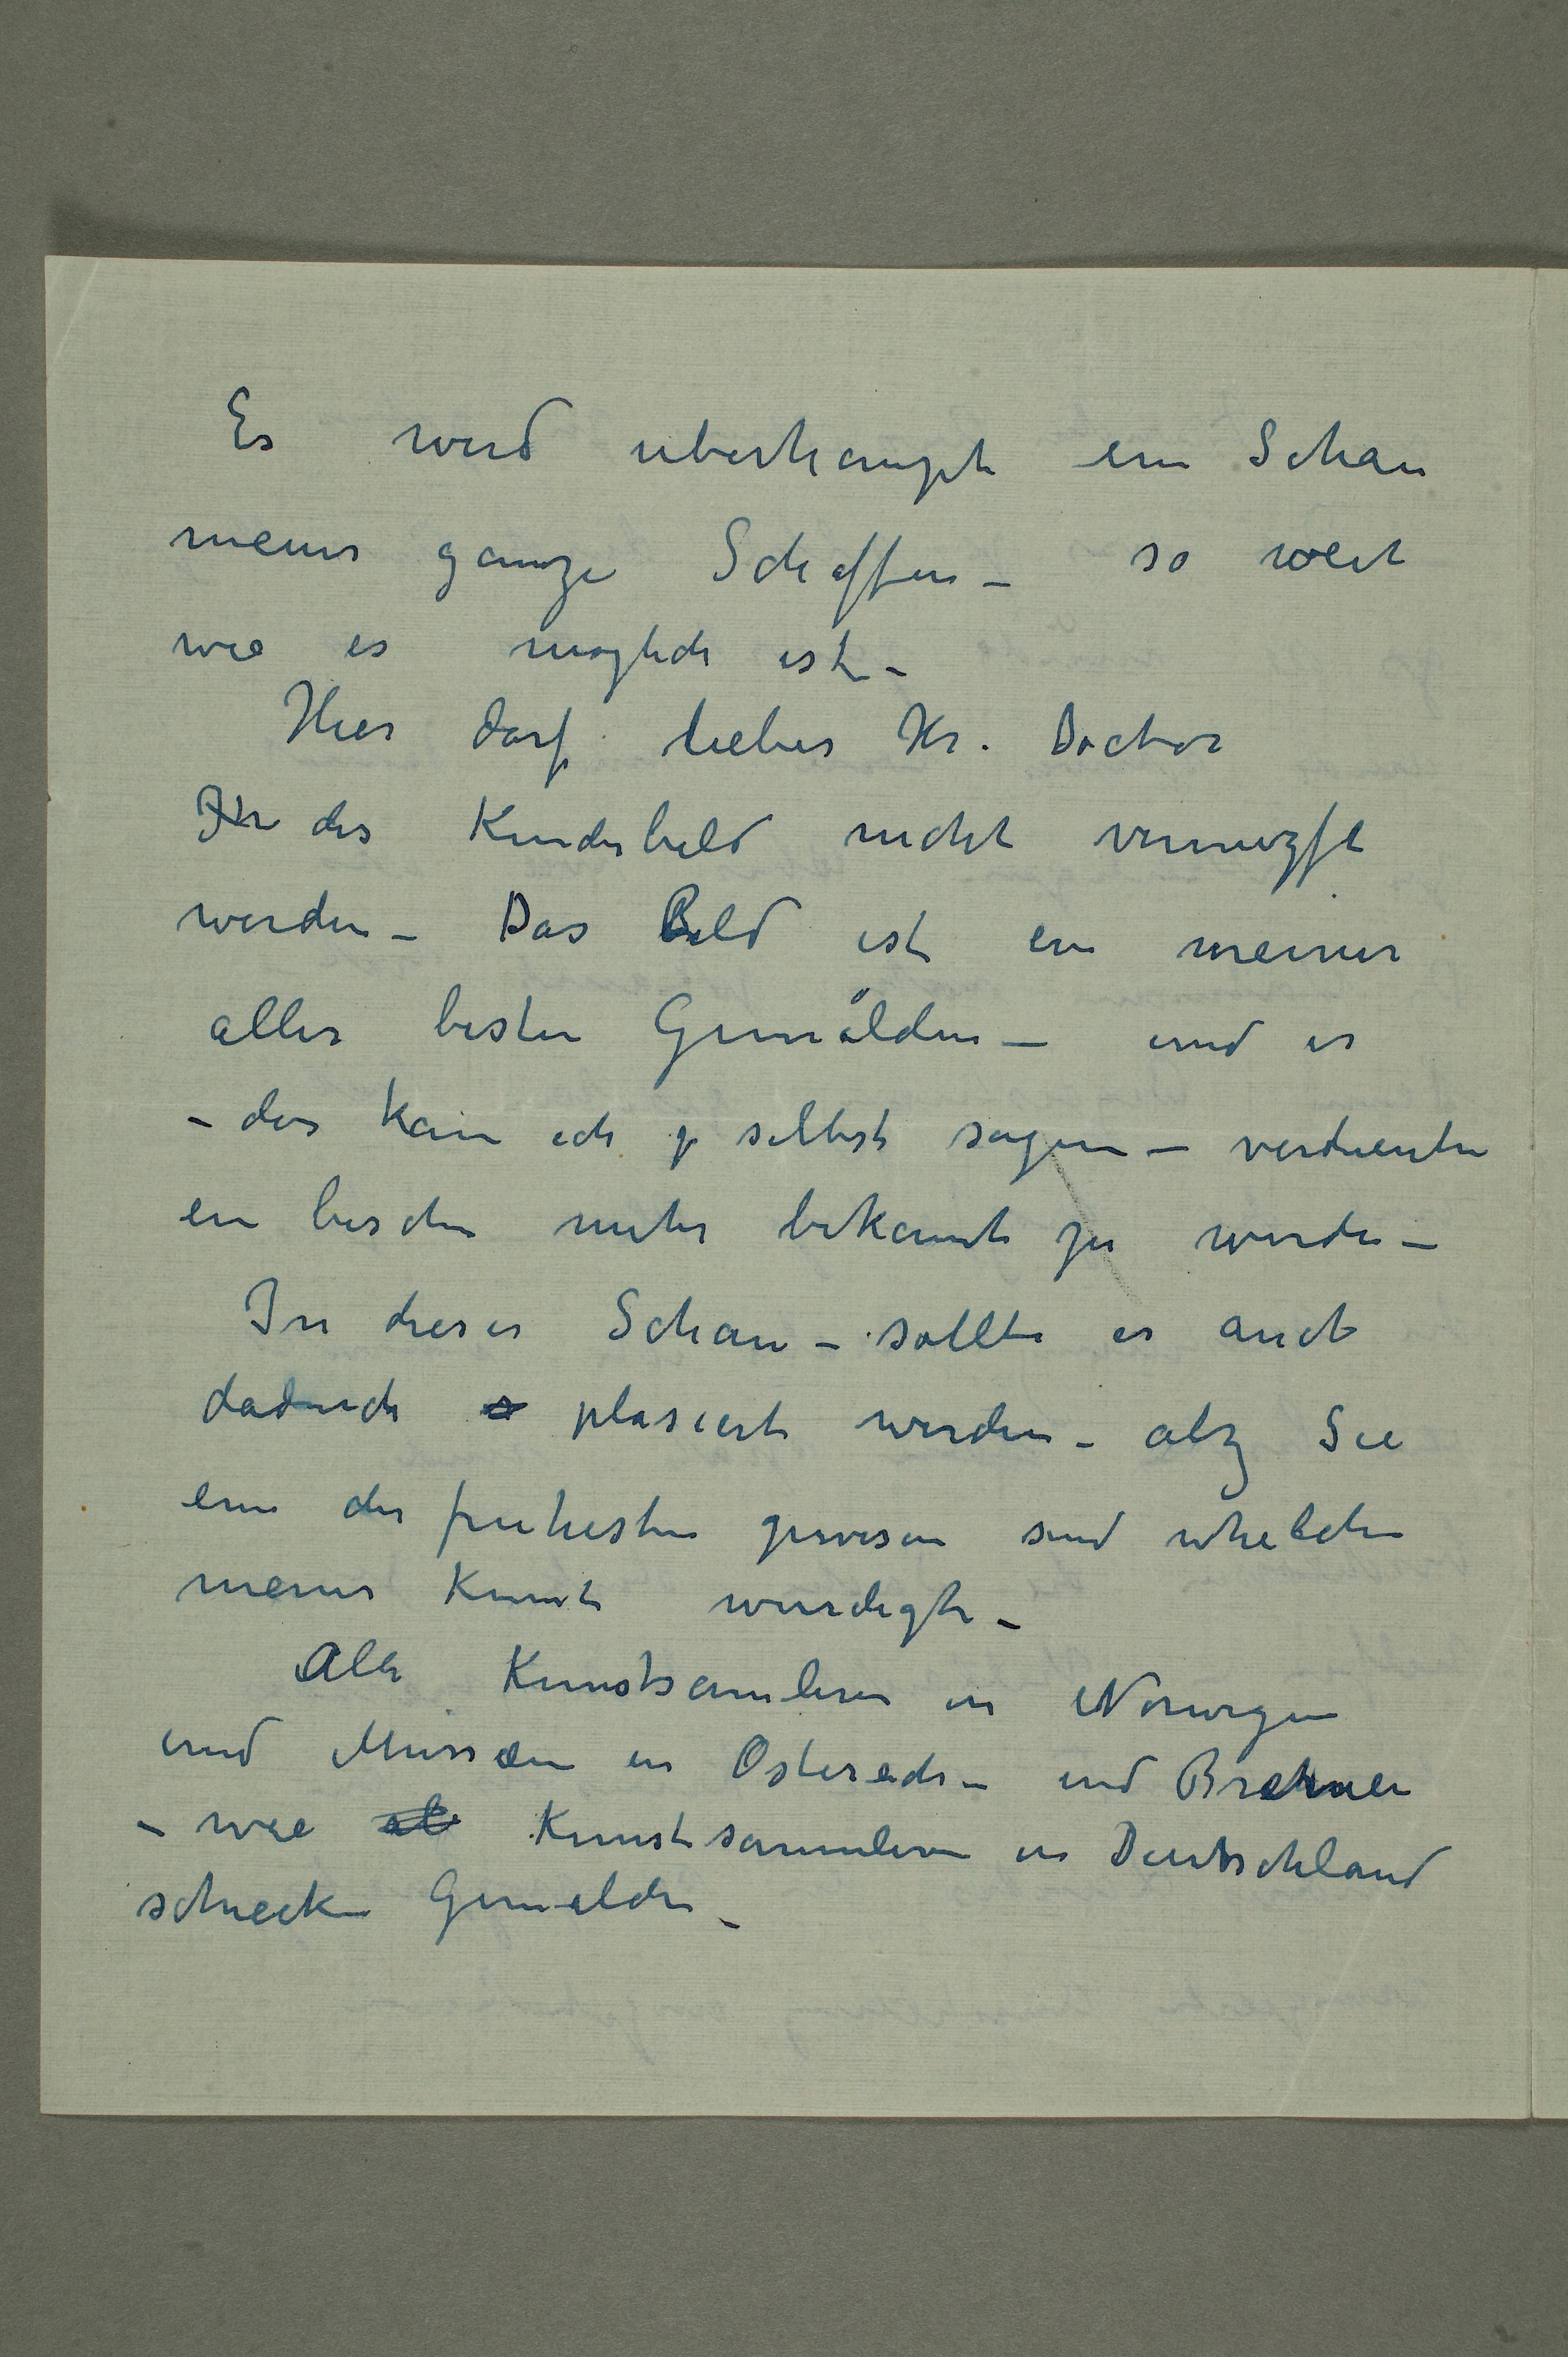 Es wird uberhaupt ein Schau
meines ganze Schaffen – so weit
wie es moglich ist –
Hier darf lieber Hr. Doctor
Ihr das Kinderbild nicht
werden – Das Bild ist ein meiner
aller besten Gemälden – und es
– das kan ich ja selbst sagen – verdiente
ein bischen mehr bekannt zu werden –
In dieser Schau – sollte es auch
dadurch plasiert werden – alz Sie
eine der fruhesten gewesen sind whelche
meine Kunst wurdigte –
Alle Kunstsamleren in Norwegen
und Museen in Ostereich – und Bremen
– wie Kunstsammleren in Deutschland
schicken Gemelde –